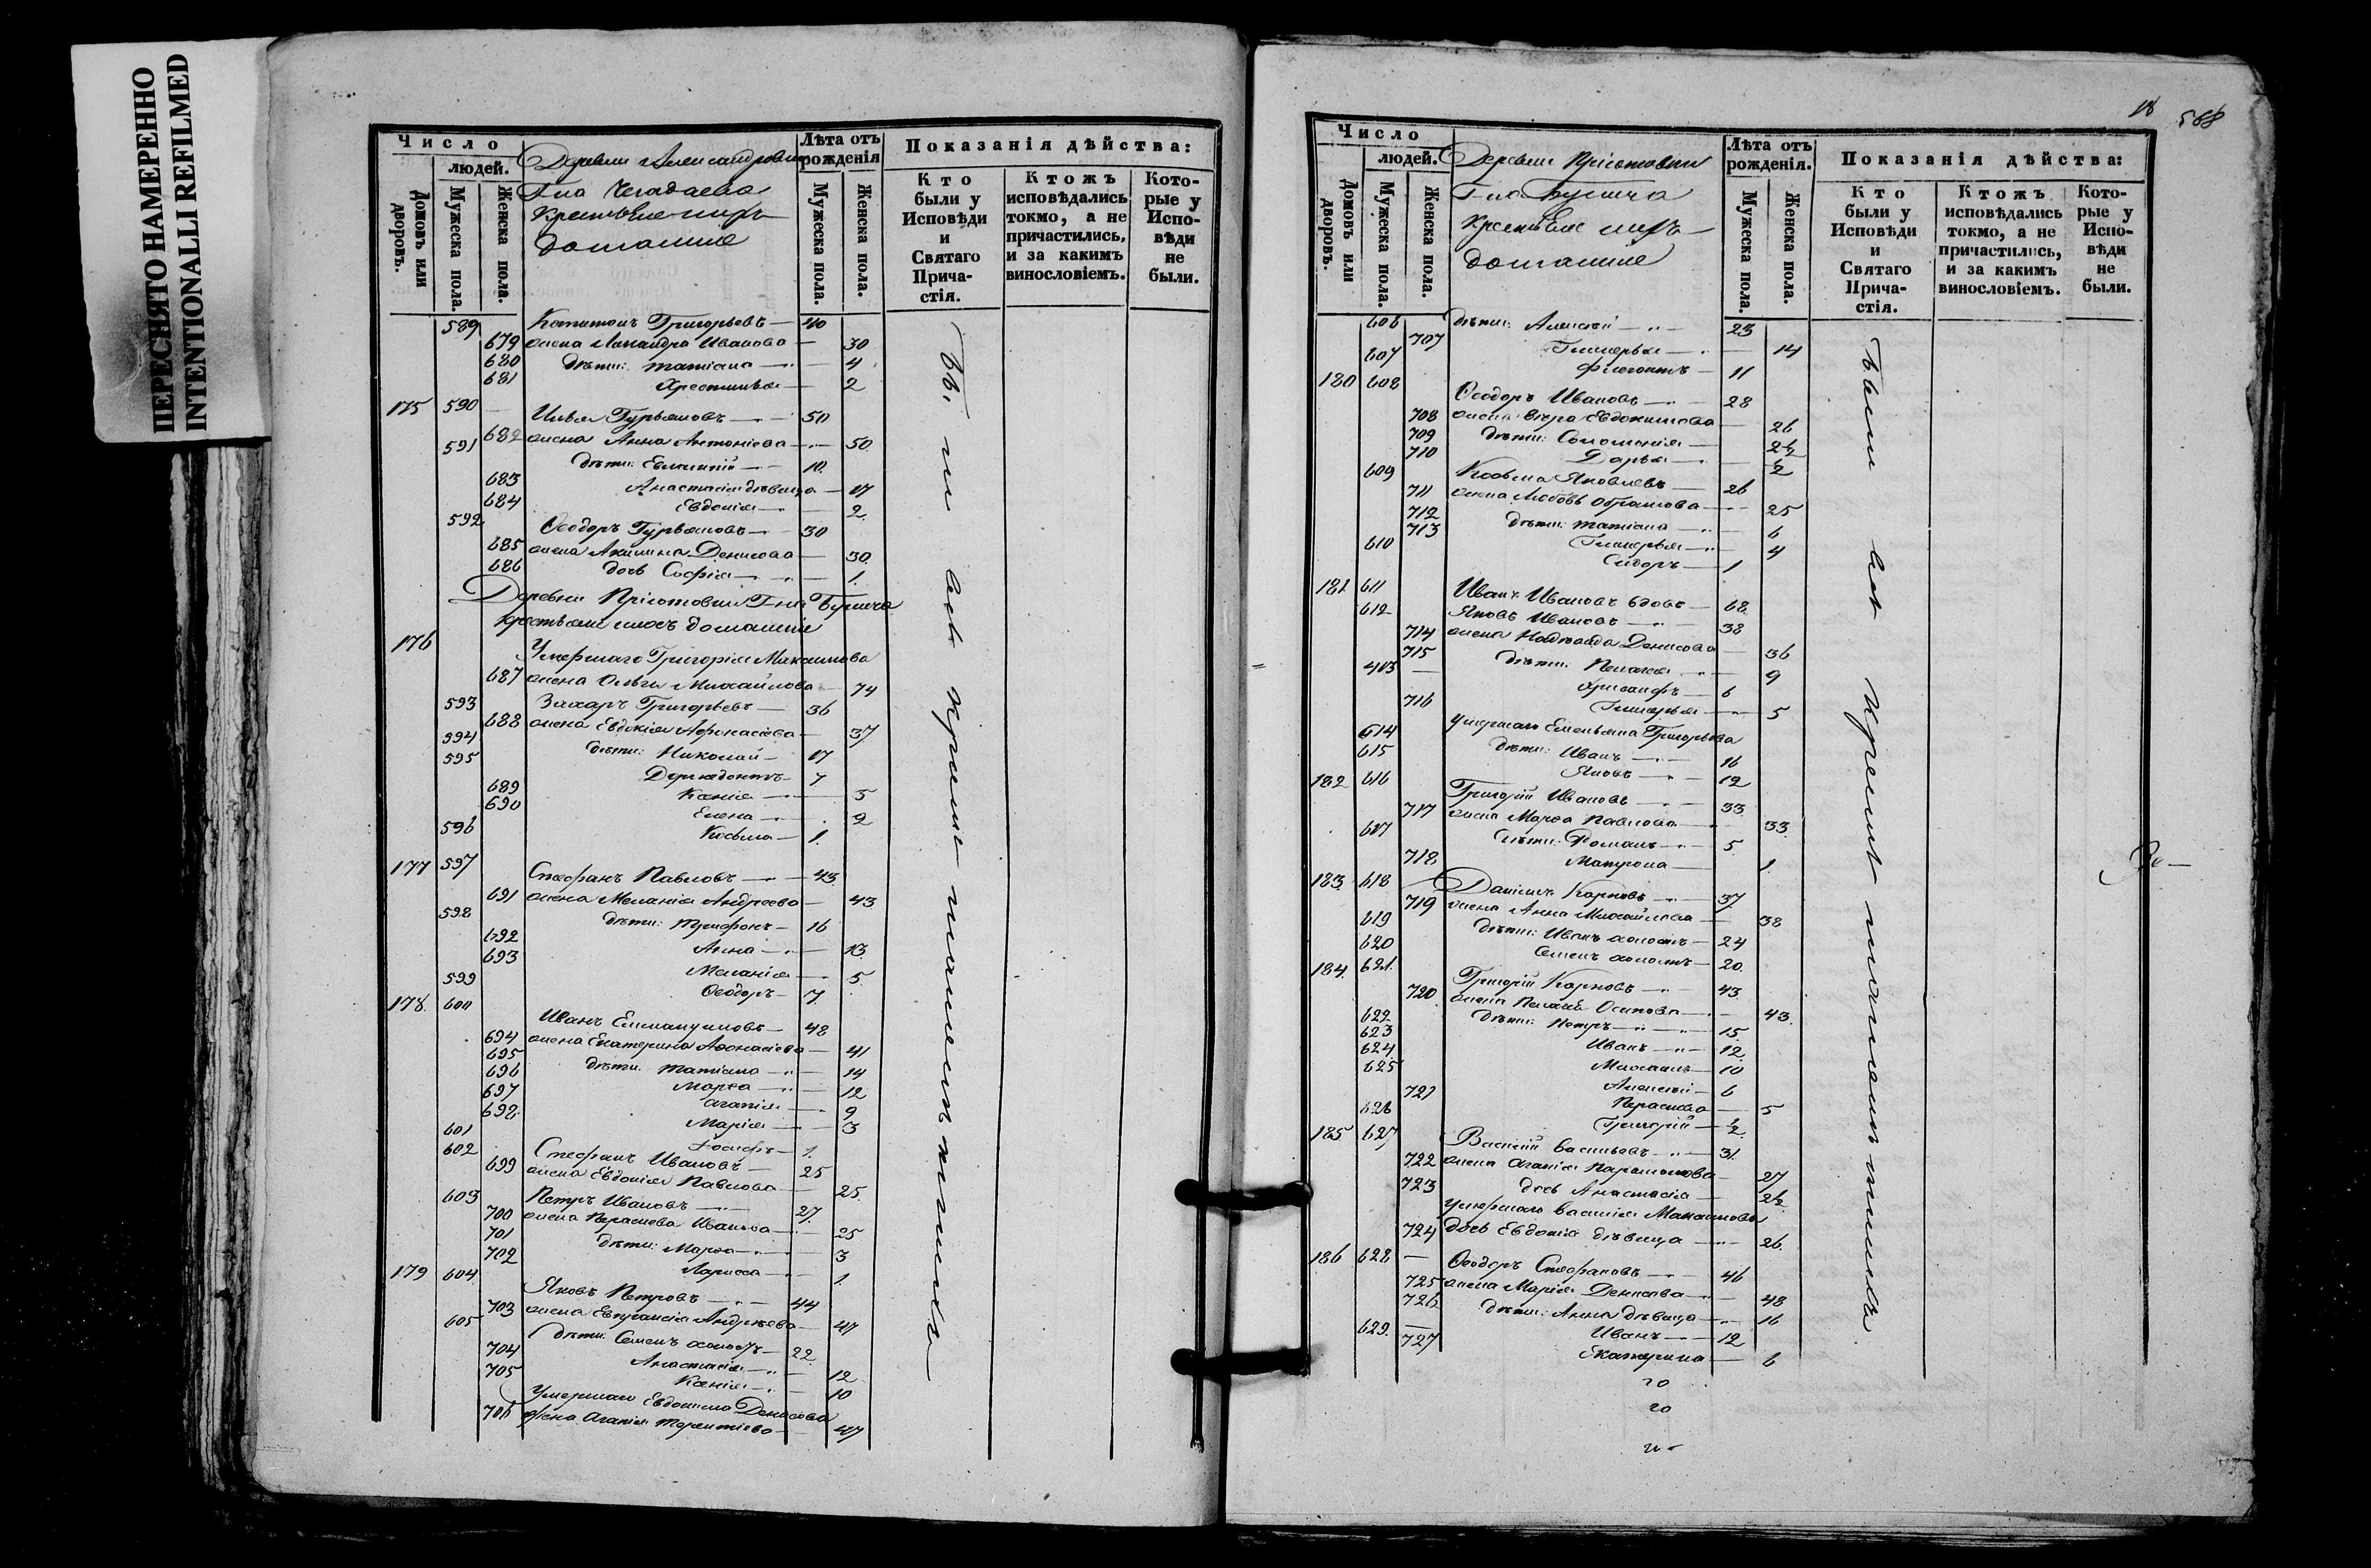 ПЕРЕСНЯТО НАМЕРЕННО
INTENTIONALLI REFILMED
Число
людей.
Домовъ или дворовъ.
Мужеска пола.
Женска пола.
Деревни Александровки
Г-на Чегадаева
крестьяне ихъ
домашние
Лѣта отъ рожденія
Мужеска пола.
Женска пола.
Показанія дѣйства:
Кто были у Исповѣди и Святаго Прича-стія.
Ктожъ исповѣдались токмо, а не причастились, и за какимъ винословіемъ.
Кото-рые у Испо-вѣди не были.
589 Капитонъ Григорьевъ 40
679 жена Иванова 30
680 дѣти: Татіана 4
681 Христинья 2
175 590 Илья Гурьяновъ 50
682 жена Анна Антоніева 50
591 дѣти: Евлампій 10
683 Анастасія дѣвица 17
684 Евдокія 2
592 Ѳеодоръ Гурьяновъ 30
685 жена Акилина Денисова 30
686 дочь Софія 1
Деревни
крестьяне домашніе
176 Умершаго Григорія Максимова
687 жена Ольга Михайлова 74
593 Захаръ Григорьевъ 36
688 жена Евдокія Афонасіева 37
594 дѣти: Николай 17
595 7
689 Ксенія 5
690 Елена 2
596 Косьма 1
177 597 Стефанъ Павловъ 43
691 жена Меланія Андреева 43
598 дѣти: Трифонъ 16
692 Анна 13
693 Меланія 5
599 Ѳеодоръ 7
178 600 Иванъ Еммануиловъ 48
694 жена Екатерина Афонасіева 41
695 дѣти: Татіана 14
696 Марѳа 12
697 Агапія 9
698 Марія 3
601 Іосифъ 1
602 Стефанъ Ивановъ 25
699 жена Евдокія Павлова 25
603 Петръ Ивановъ 27
700 жена Параскева Иванова 25
701 дѣти: Марѳа 3
702 Лариса 1
179 604 Яковъ Петровъ 44
703 жена Евпраксія Андреева 47
605 дѣти: Семенъ холостъ 22
704 Анастасія 12
705 Ксенія 10
Умершаго Евдокима Денисова
706 жена Агапія Терентіева 47
18 568
Число
людей.
Домовъ или дворовъ.
Мужеска пола.
Женска пола.
Деревни
Г-на
крестьяне ихъ
домашние
Лѣта отъ рожденія.
Мужеска пола.
Женска пола.
Показанія дѣйства:
Кто были у Исповѣди и Святаго Прича-стія.
Ктожъ исповѣдались токмо, а не причастились, и за какимъ винословіемъ.
Кото-рые у Испо-вѣди не были.
606 дѣти: Алексѣй 23
707 Гликерья 14
607 Филегонтъ 11
180 608 Ѳеодоръ Ивановъ 28
708 жена Вѣра Евдокимова 26
709 дѣти: Соломонія 2½
710 Дарья ½
609 Косьма Яковлевъ 26
711 жена Любовь Абрамова 25
712 дѣти: Татіана 6
713 Гликерья 4
610 Сидоръ 1
181 611 Иванъ Ивановъ вдовъ 68
612 Яковъ Ивановъ 38
714 жена Надежда Денисова 36
715 дѣти: Пелагея 9
613 Хрисанфъ 6
716 Гликерья 5
Умершаго Емельяна Григорьева
614 дѣти: Иванъ 16
615 Яковъ 12
182 616 Григорій Ивановъ 33
717 жена Марѳа Павлова 33
617 дѣти: Романъ 5
718 Матрона 1
183 618 Даніилъ Карповъ 37
719 жена Анна Михайлова 38
619 дѣти: Иванъ холостъ 24
620 Семенъ холостъ 20
184 621 Григорій Карповъ 43
720 жена Пелагея Осипова 43
622 дѣти: Петръ 15
623 Иванъ 12
624 Михаилъ 10
625 Алексѣй 6
721 Параскева 5
626 Григорій ½
185 627 Василій Васильевъ 31
722 жена Агапія Парамонова 27
723 дочь Анастасія 2½
Умершаго Василія Максимова
724 дочь Евдокія дѣвица 26
186 628 Ѳеодоръ Стефановъ 46
725 жена Марія Денисова 48
726 дѣти: Анна дѣвица 16
629 Иванъ 12
727 Екатерина 6